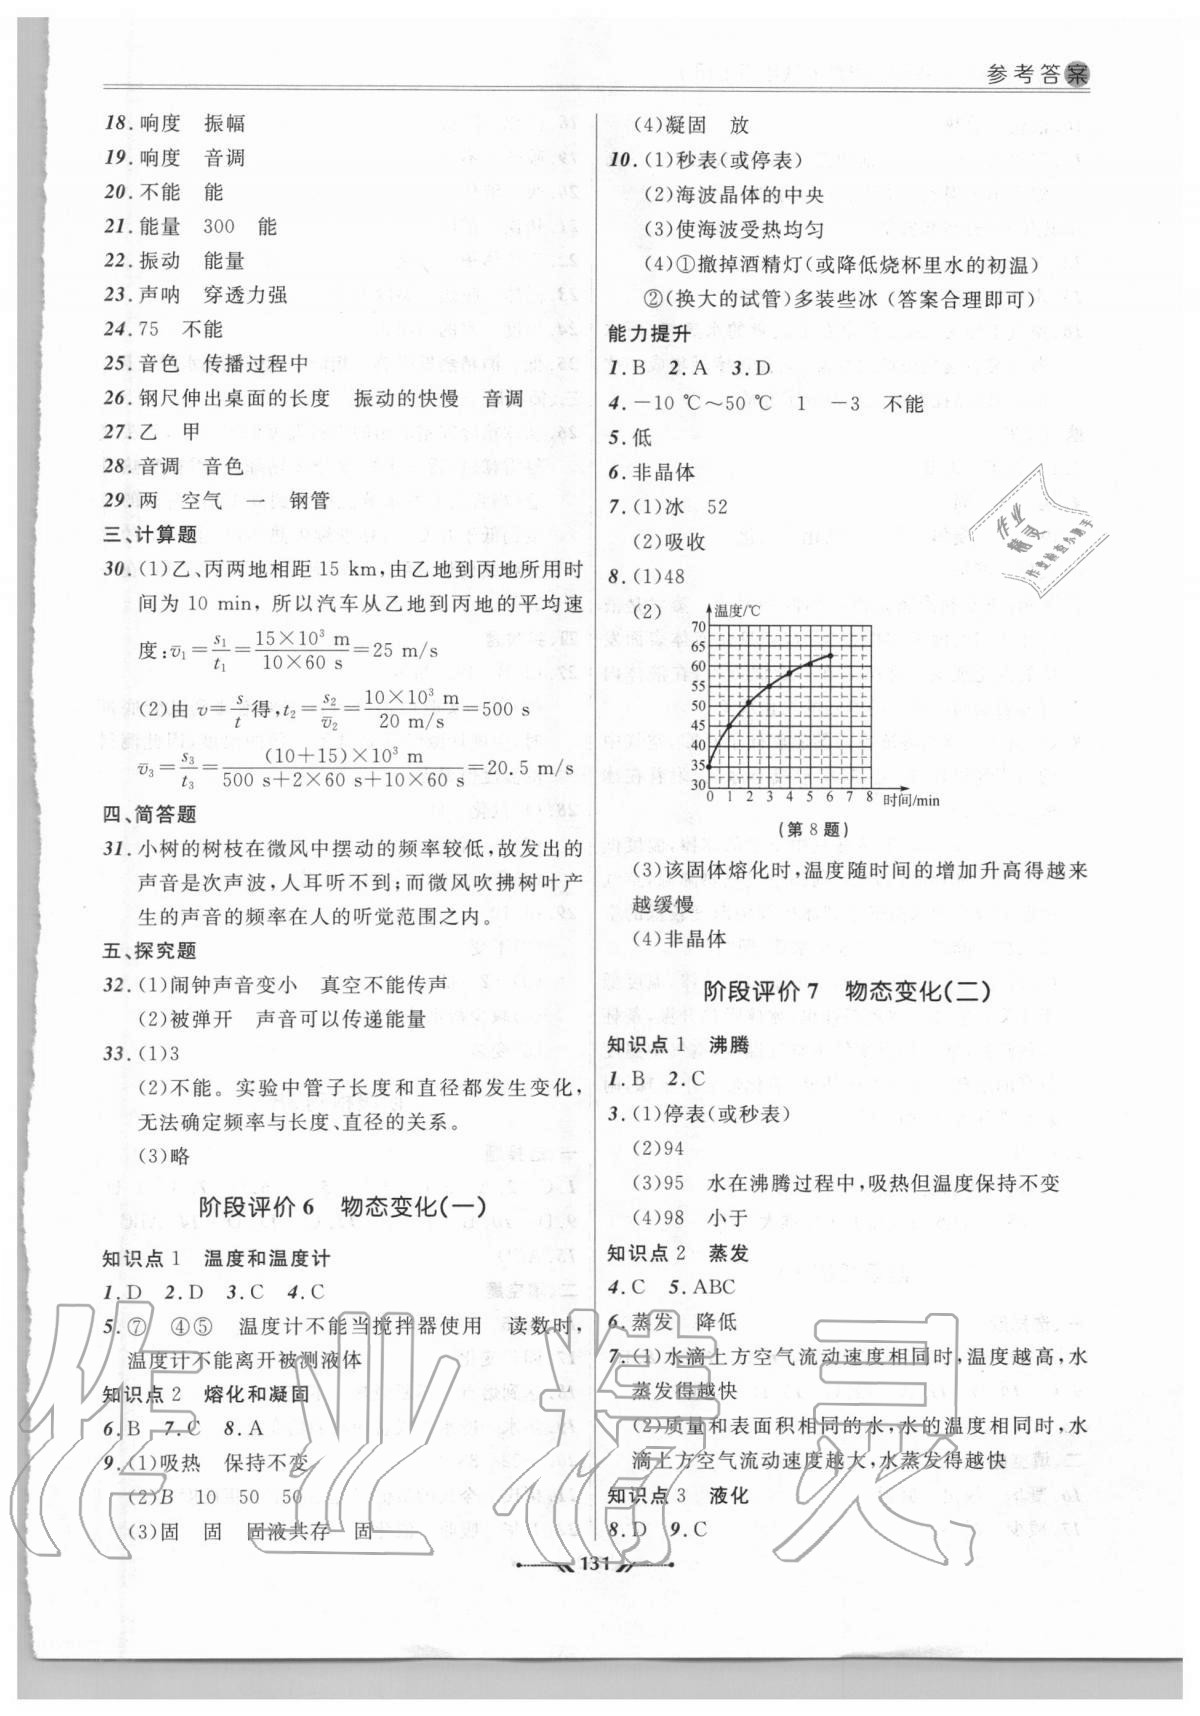 参考答案
18. 响度　振幅
19. 响度　音调
20. 不能　能
21. 能量　300　能
22. 振动　能量
23. 声呐　穿透力强
24. 75　不能
25. 音色　传播过程中
26. 钢尺伸出桌面的长度　振动的快慢　音调
27. 乙　甲
28. 音调　音色
29. 两　空气　一　钢管
三、计算题
30. (1)乙、丙两地相距 15 km,由乙地到丙地所用时
间为 10 min, 所以汽车从乙地到丙地的平均速
度: v̄₁=s₁/t₁=(15×10³ m)/(10×60 s)=25 m/s
(2)由 v=s/t 得, t₂=s₂/v̄₂=(10×10³ m)/(20 m/s)=500 s
v̄₃=s₃/t₃=((10+15)×10³ m)/(500 s+2×60 s+10×60 s)=20.5 m/s
四、简答题
31. 小树的树枝在微风中摆动的频率较低,故发出的
声音是次声波,人耳听不到;而微风吹拂树叶产
生的声音的频率在人的听觉范围之内。
五、探究题
32. (1)闹钟声音变小　真空不能传声
(2)被弹开　声音可以传递能量
33. (1)3
(2)不能。实验中管子长度和直径都发生变化,
无法确定频率与长度、直径的关系。
(3)略
阶段评价 6　物态变化(一)
知识点 1　温度和温度计
1. D　2. D　3. C　4. C
5. ⑦　④⑤　温度计不能当搅拌器使用　读数时,
温度计不能离开被测液体
知识点 2　熔化和凝固
6. B　7. C　8. A
9. (1)吸热　保持不变
(2)B　10　50　50
(3)固　固　固液共存　固
(4)凝固　放
10. (1)秒表(或停表)
(2)海波晶体的中央
(3)使海波受热均匀
(4)①撤掉酒精灯(或降低烧杯里水的初温)
②(换大的试管)多装些冰 (答案合理即可)
能力提升
1. B　2. A　3. D
4. －10 ℃～50 ℃　1　－3　不能
5. 低
6. 非晶体
7. (1)冰　52
(2)吸收
8. (1)48
(2)
温度/℃
70
65
60
55
50
45
40
35
30
0 1 2 3 4 5 6 7 8 时间/min
(第 8 题)
(3)该固体熔化时,温度随时间的增加升高得越来
越缓慢
(4)非晶体
阶段评价 7　物态变化(二)
知识点 1　沸腾
1. B　2. C
3. (1)停表(或秒表)
(2)94
(3)95　水在沸腾过程中,吸热但温度保持不变
(4)98　小于
知识点 2　蒸发
4. C　5. ABC
6. 蒸发　降低
7. (1)水滴上方空气流动速度相同时,温度越高,水
蒸发得越快
(2)质量和表面积相同的水,水的温度相同时,水
滴上方空气流动速度越大,水蒸发得越快
知识点 3　液化
8. D　9. C
131
作业精灵
作业
精灵
作业检查小助手